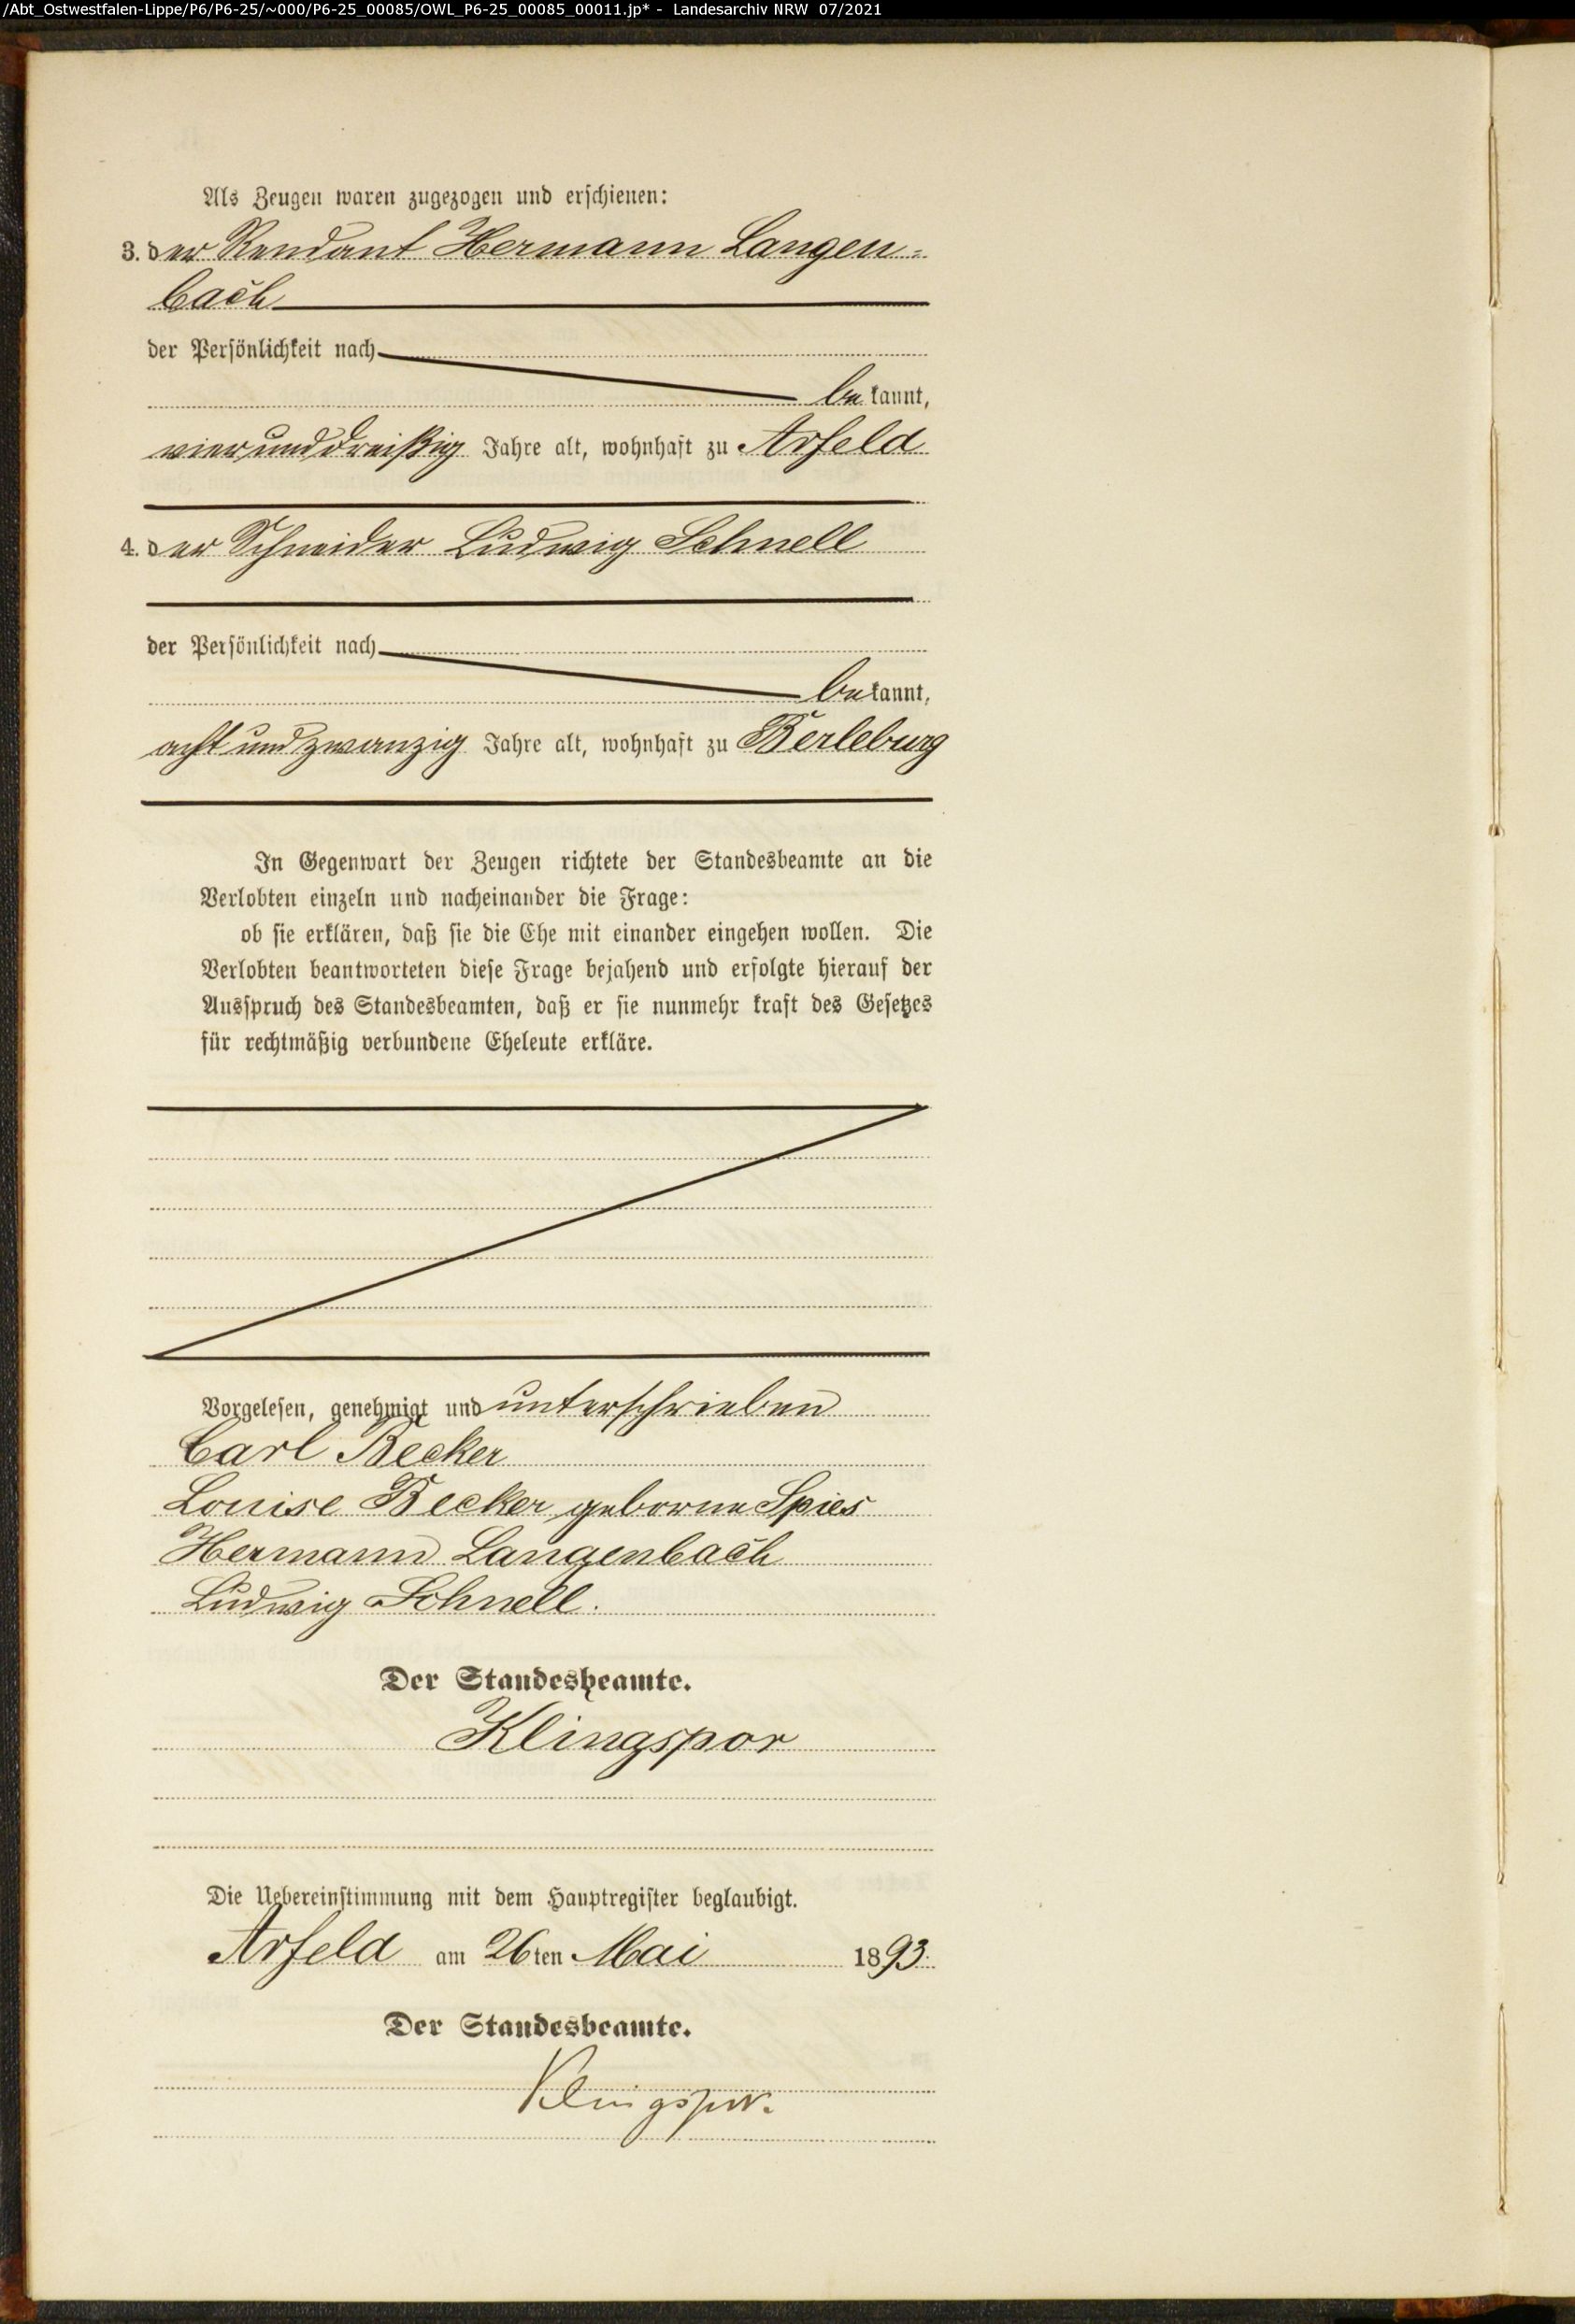 /Abt_Ostwestfalen-Lippe/P6/P6-25/~000/P6-25_00085/OWL_P6-25_00085_00011.jp* - Landesarchiv NRW 07/2021
Als Zeugen waren zugezogen und erschienen:
3. der Rendant Hermann Langen=
bach
der Persönlichkeit nach
bekannt,
vierunddreißig Jahre alt, wohnhaft zu Arfeld
4. der Schneider Ludwig Schnell
der Persönlichkeit nach
bekannt,
acht und zwanzig Jahre alt, wohnhaft zu Berleburg
In Gegenwart der Zeugen richtete der Standesbeamte an die
Verlobten einzeln und nacheinander die Frage:
ob sie erklären, daß sie die Ehe mit einander eingehen wollen. Die
Verlobten beantworteten diese Frage bejahend und erfolgte hierauf der
Ausspruch des Standesbeamten, daß er sie nunmehr kraft des Gesetzes
für rechtmäßig verbundene Eheleute erkläre.
Vorgelesen, genehmigt und unterschrieben
Carl Becker
Louise Becker geborne Spies
Hermann Langenbach
Ludwig Schnell.
Der Standesbeamte.
Klingspor
Die Uebereinstimmung mit dem Hauptregister beglaubigt.
Arfeld am 26ten Mai 1893.
Der Standesbeamte.
Klingspor.